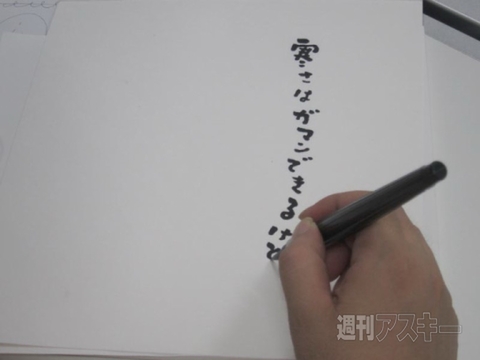 寒さはガマンできるけど
週刊アスキー